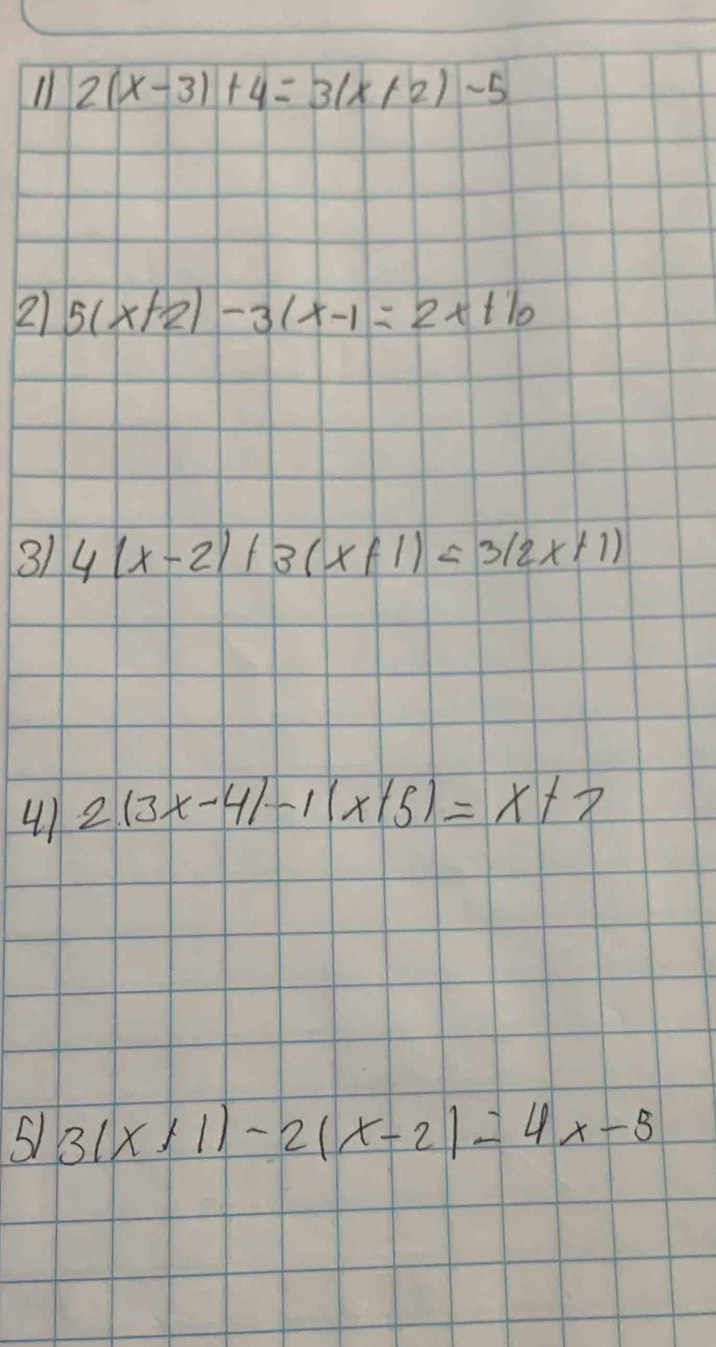 1) 2(x-3)+4=3(x+2)-5
2) 5(x+2)-3(x-1=2x+10
3) 4(x-2)+3(x+1)=3(2x+1)
4) 2(3x-4)-1(x+5)=x+7
5) 3(x+1)-2(x-2)=4x-5